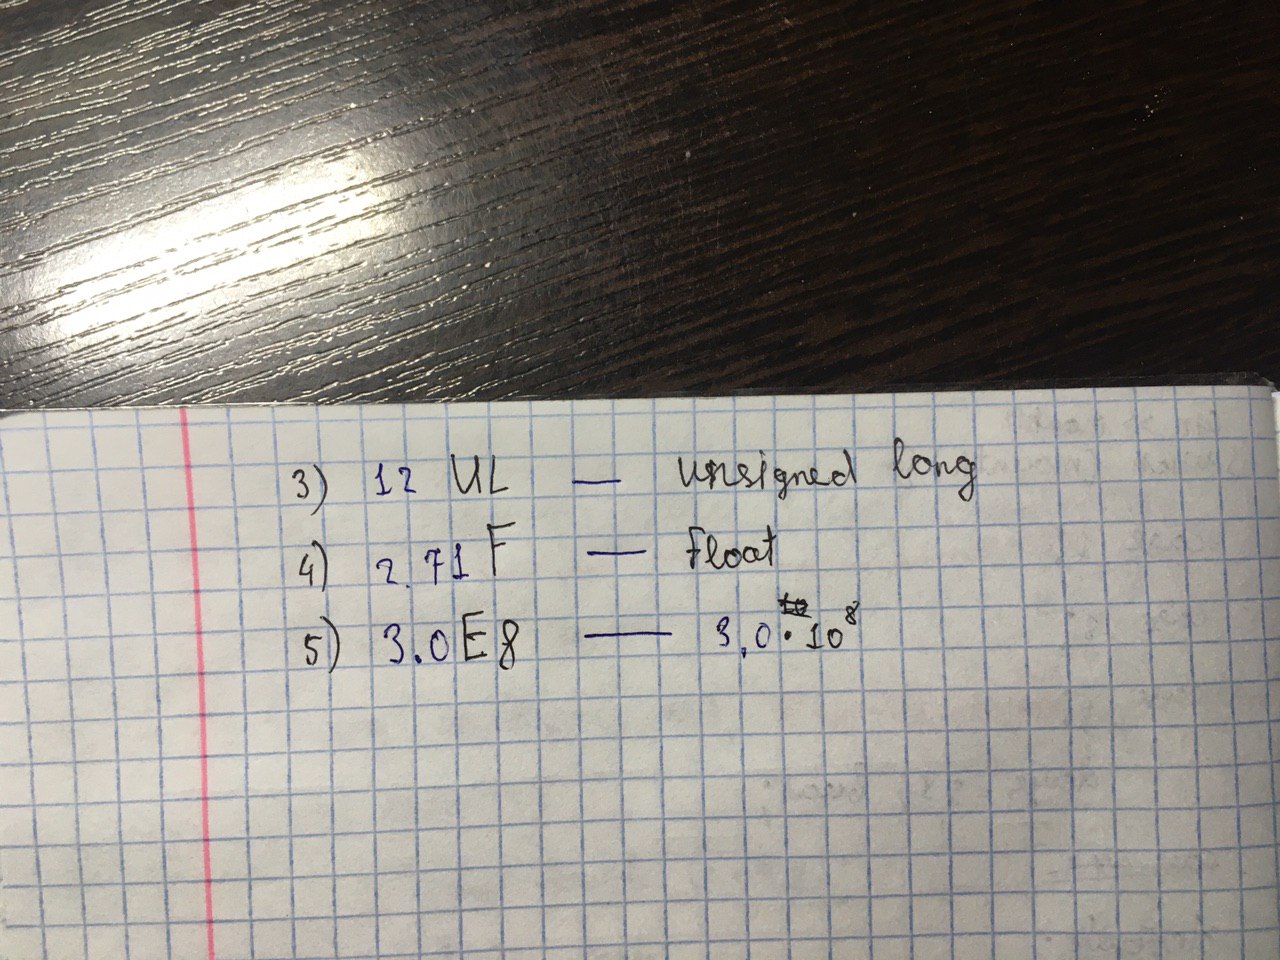 3) 12 UL — unsigned long
4) 2.71 F — float
5) 3.0E8 — 3,0 · 10⁸